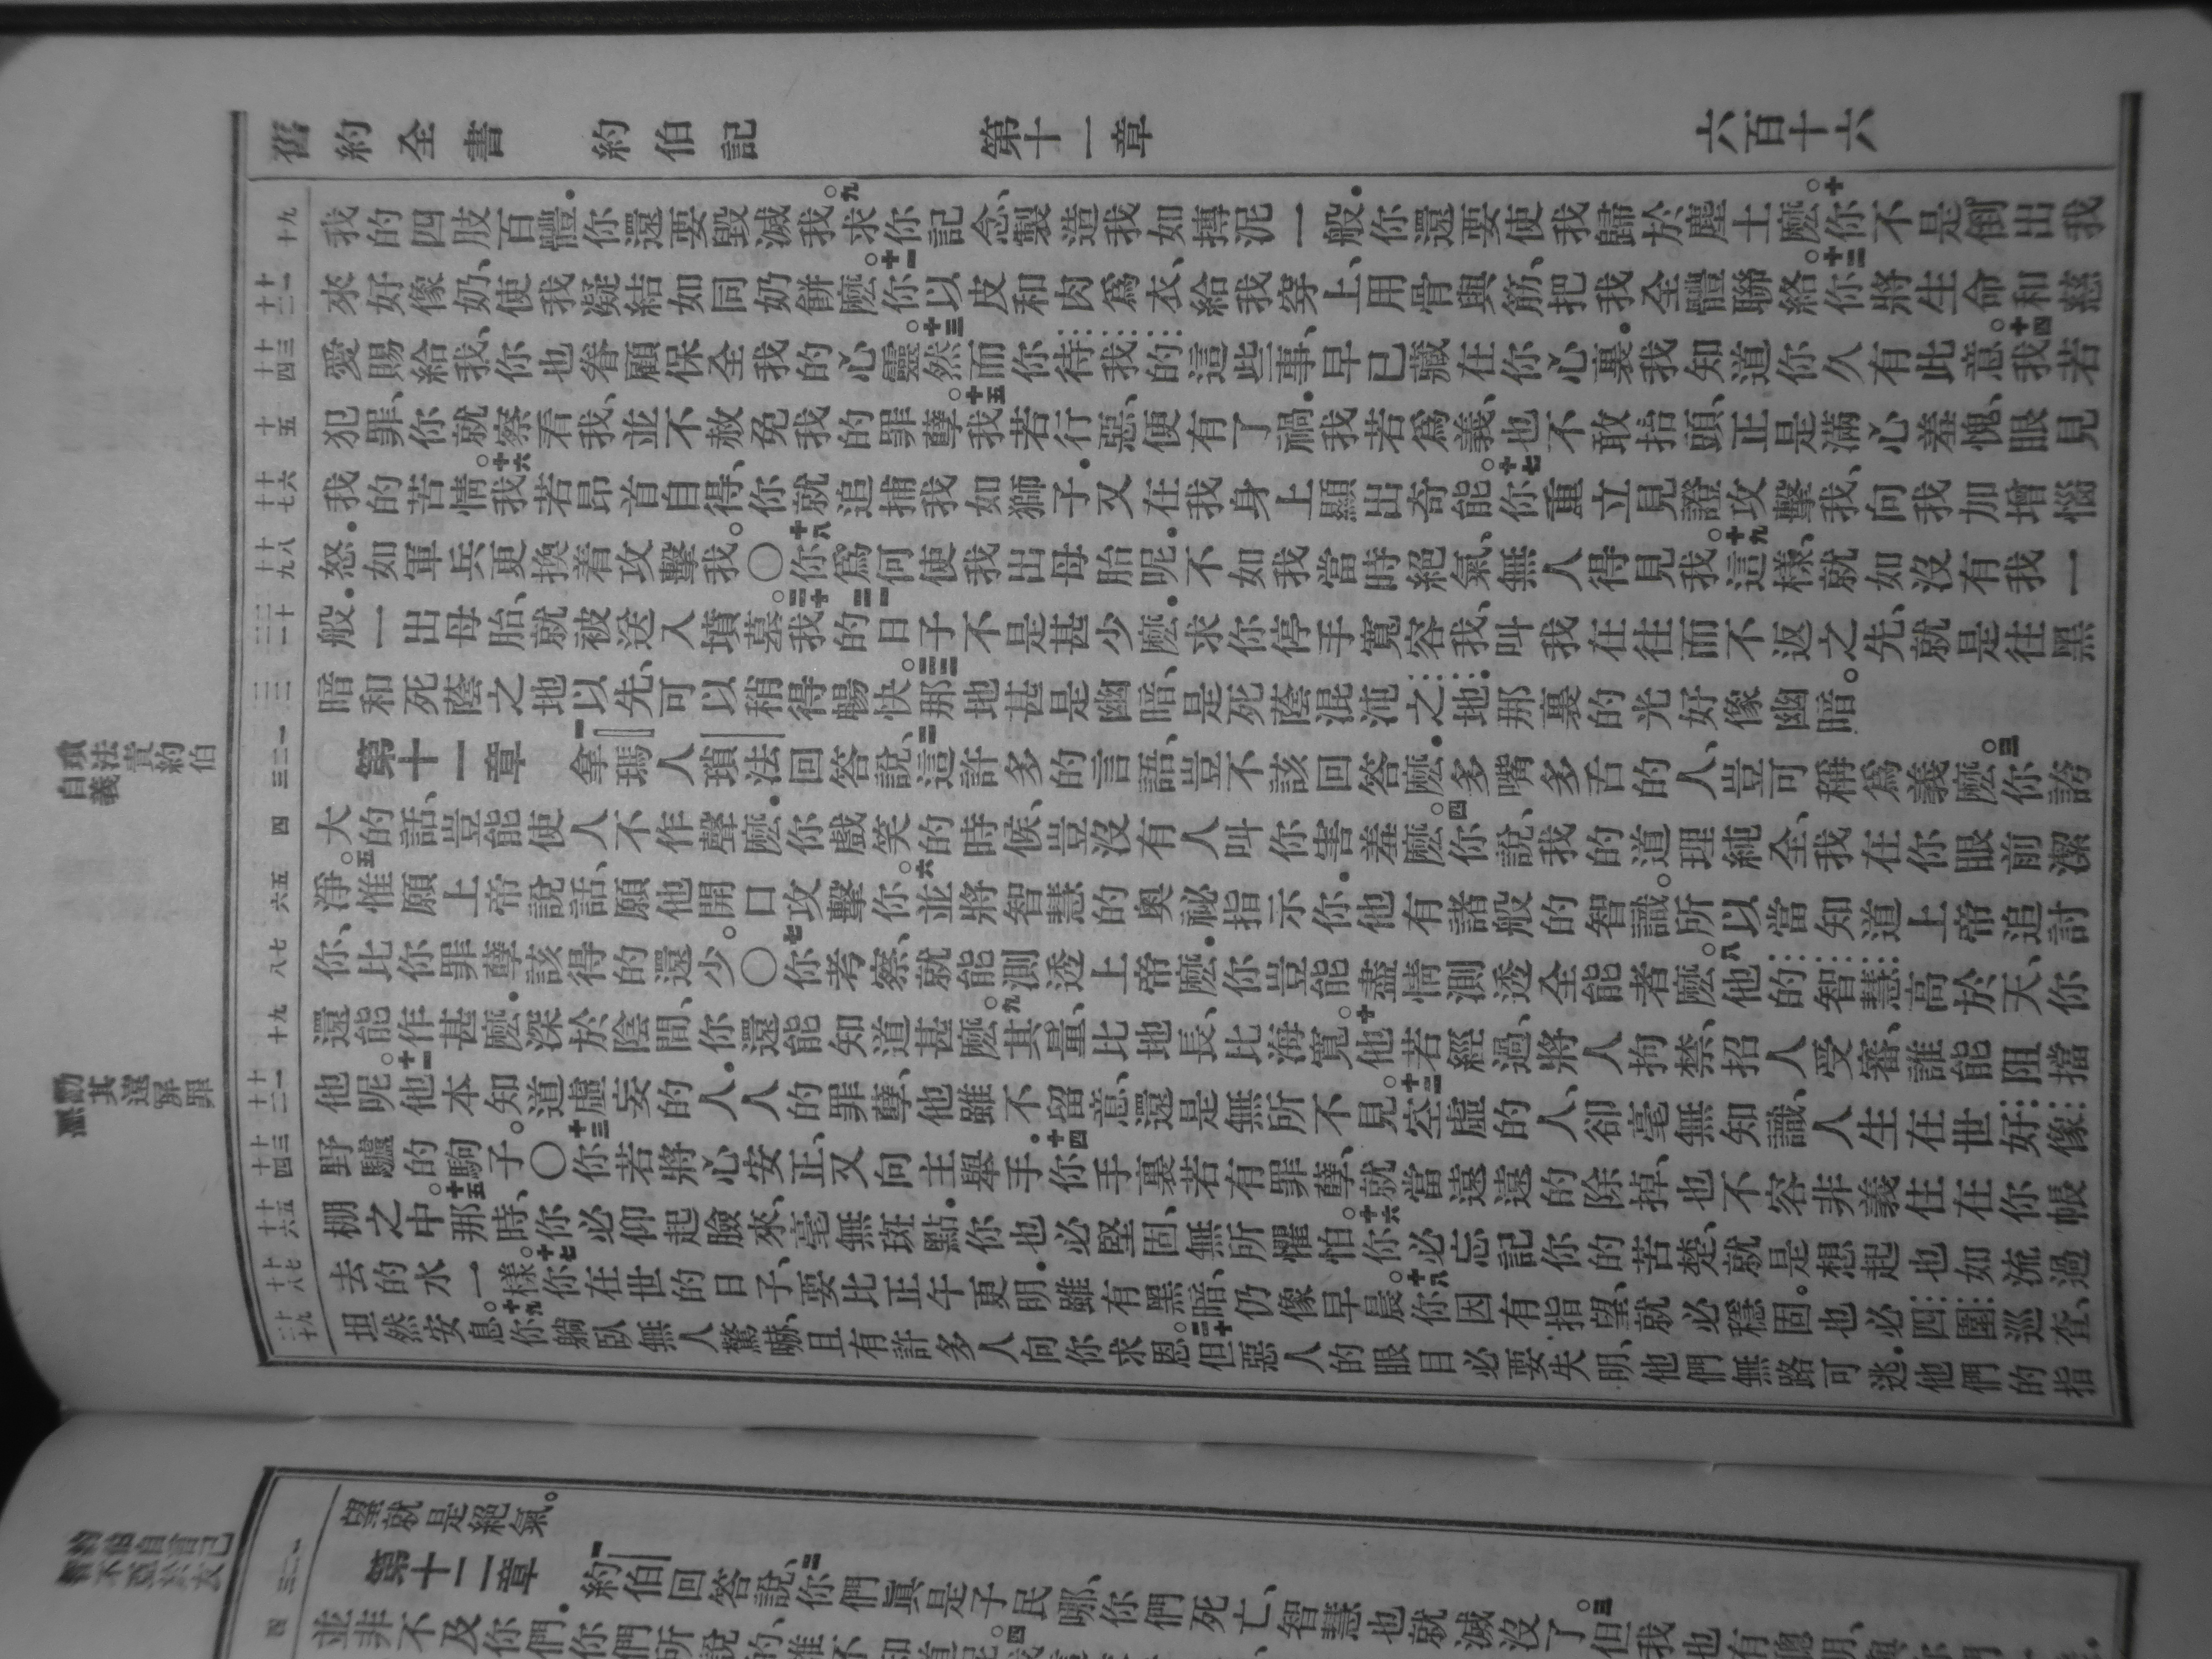 舊約全書 約伯記 第十一章 六百十六
我的四肢百體．你還要毀滅我。九求你記念、製造我如摶泥一般．你還要使我歸於塵土麼。十你不是倒出我
來好像奶、使我凝結如同奶餅麼。十一你以皮和肉爲衣、給我穿上、用骨與筋、把我全體聯絡。十二你將生命和慈
愛賜給我、你也眷顧保全我的心靈。十三然而你待我的這些事、早已藏在你心裏．我知道你久有此意。十四我若
犯罪、你就察看我、並不赦免我的罪孽。十五我若行惡、便有了禍．我若爲義、也不敢抬頭、正是滿心羞愧、眼見
我的苦情。十六我若昂首自得、你就追捕我如獅子．又在我身上顯出奇能。十七你重立見證攻擊我、向我加增惱
怒．如軍兵更換着攻擊我。〇十八你爲何使我出母胎呢．不如我當時絕氣、無人得見我。十九這樣、就如沒有我一
般．一出母胎、就被送入墳墓。二十我的日子不是甚少麼．求你停手寬容我、二一叫我在往而不返之先、就是往黑
暗和死蔭之地以先、可以稍得暢快。二二那地甚是幽暗、是死蔭混沌之地．那裏的光好像幽暗。
第十一章 一拿瑪人瑣法回答說、二這許多的言語、豈不該回答麼．多嘴多舌的人、豈可稱爲義麼。三你誇
大的話、豈能使人不作聲麼．你戲笑的時候、豈沒有人叫你害羞麼。四你說、我的道理純全、我在你眼前潔
淨。五惟願上帝說話、願他開口攻擊你。六並將智慧的奧祕指示你．他有諸般的智識。所以當知道上帝追討
你、比你罪孽該得的還少。〇七你考察、就能測透上帝麼．你豈能盡情測透全能者麼。八他的智慧高於天、你
還能作甚麼．深於陰間、你還能知道甚麼。九其量、比地長、比海寬。十他若經過、將人拘禁、招人受審、誰能阻擋
他呢。十一他本知道虛妄的人．人的罪孽、他雖不留意、還是無所不見。十二空虛的人、卻毫無知識、人生在世好像
野驢的駒子。〇十三你若將心安正、又向主舉手．十四你手裏若有罪孽、就當遠遠的除掉、也不容非義住在你帳
棚之中。十五那時、你必仰起臉來、毫無斑點．你也必堅固、無所懼怕。十六你必忘記你的苦楚、就是想起也如流過
去的水一樣。十七你在世的日子、要比正午更明．雖有黑暗、仍像早晨。十八你因有指望、就必穩固。也必四圍巡查、
坦然安息。十九你躺臥無人驚嚇、且有許多人向你求恩。二十但惡人的眼目必要失明、他們無路可逃．他們的指
瑣法責約伯
自義
勸其遠屏罪
望就是絕氣。
第十二章 一約伯回答說、二你們眞是子民哪、你們死亡、智慧也就滅沒了。三但我也有聰明、
並非不及你們．你們所說的、誰不知道呢。四